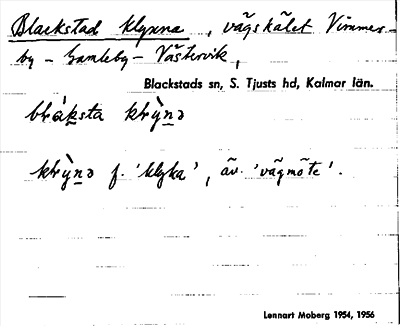 Blackstad klynna, vägskälet Vimmer-
by - Gamleby - Västervik,
Blackstads sn, S. Tjusts hd, Kalmar län.
f. 'klyka', äv. 'vägmöte'.
Lennart Moberg 1954, 1956